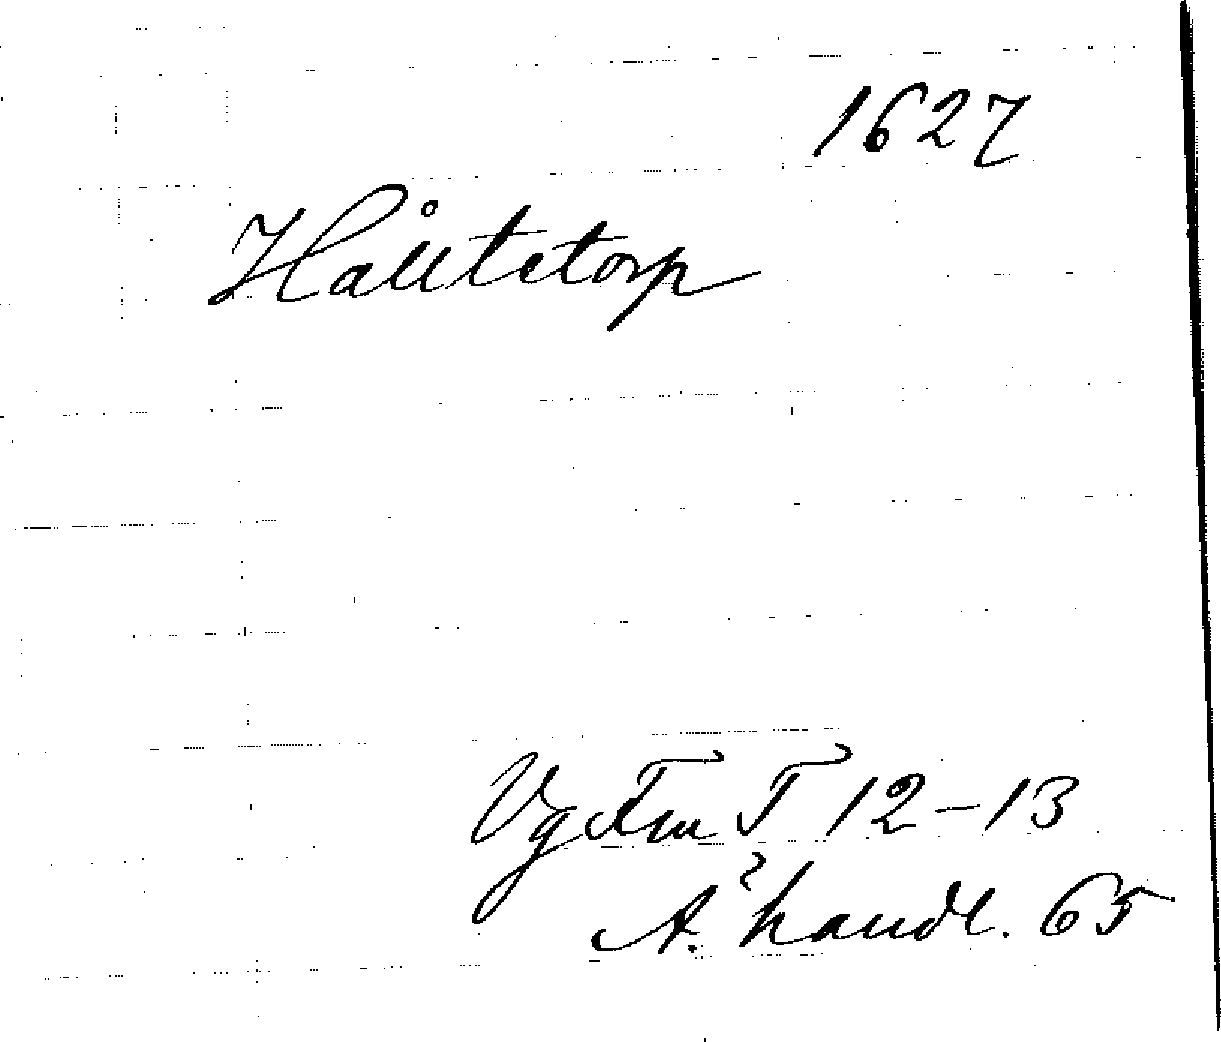 1627
Hålltetorp
Vg Fm T 12-13
A. handl. 65